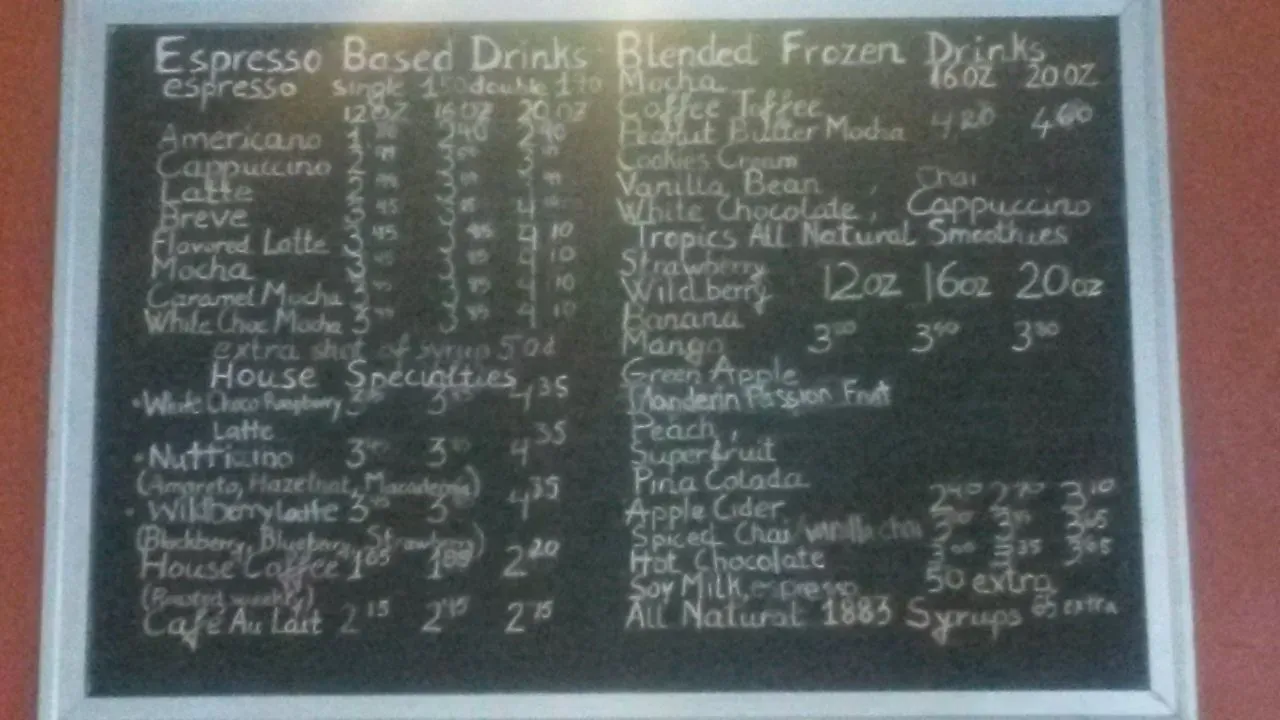 Espresso Based Drinks
espresso single 1 50 double 1 70
12oz 16oz 20oz
Americano 2 40 2 90
Cappuccino 2 3
Latte 2 3
Breve 3 45 3 4
Flavored Latte 3 45 3 85 4 10
Mocha 3 45 3 85 4 10
Caramel Mocha 3 3 85 4 10
White Choc Mocha 3 3 85 4 10
extra shot of syrup 50¢
House Specialties
•White Choco Raspberry 3 3 4 35
Latte
•Nutticino 3 3 4 35
(Amareto, Hazelnat, Macadamia)
• Wildberry Latte 3 3 4 35
(Blackberry, Blueberry, Strawberry)
House Coffee 1 65 1 2 20
(Roasted weekly)
Café Au Lait 2 15 2 45 2 75
Blended Frozen Drinks
Mocha 16oz 20oz
Coffee Toffee
Peanut Butter Mocha 4 20 4 60
Cookies Cream
Vanilla Bean , Chai
White Chocolate, Cappuccino
Tropics All Natural Smoothies
Strawberry
Wildberry 12oz 16oz 20oz
Banana
Mango 3 3 3
Green Apple
Manderin Passion Fruit
Peach,
Superfruit
Pina Colada
Apple Cider 2 40 2 70 3 10
Spiced Chai/vanilla chai 3 3 3 65
Hot Chocolate 3 3 35 3 65
Soy Milk, espresso 50 extra
All Natural 1883 Syrups extra